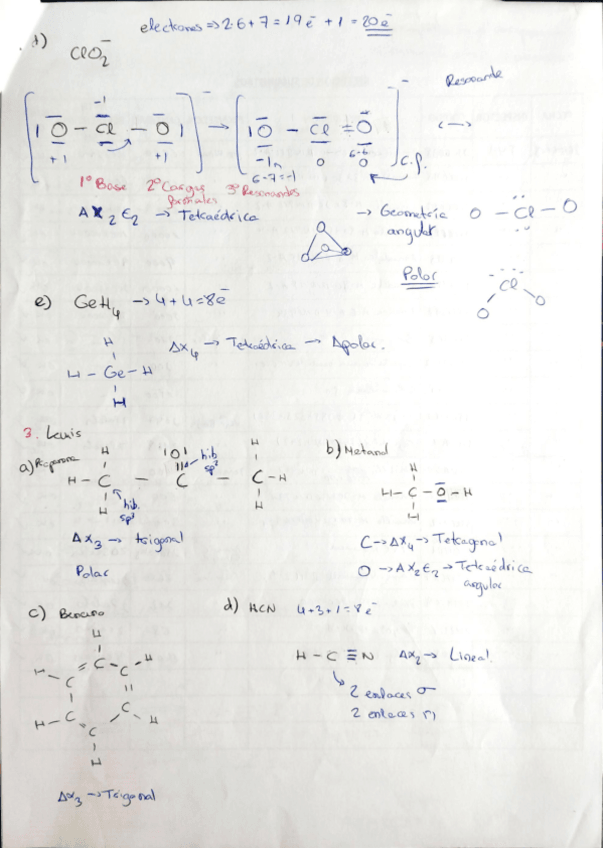 electrones ⇒ 2·6+7 = 19 e⁻ + 1 = 20 e⁻
d) ClO₂⁻
Resonante
[ |O - Cl - O| ]⁻ → [ |O - Cl = O ]⁻ ↔
-1
+1 +1 -1 0 0 c.f.
6-7=-1 6-6
1º Base 2º Cargas formales 3º Resonantes
AX₂E₂ → Tetraédrica → Geometría angular O - Cl - O
Polar
Cl
O O
e) GeH₄ → 4+4=8e⁻
H
H - Ge - H
H
AX₄ → Tetraédrica → Apolar.
3. Lewis
a) Propanona
H |O| H
H - C - C - C - H
H H
hib. sp²
hib. sp³
AX₃ → trigonal
Polar
b) Metanol
H
H - C - O - H
H
C → AX₄ → Tetragonal
O → AX₂E₂ → Tetraédrica angular
c) Benceno
H
H C H
C C
C C
H C H
H
AX₃ → Trigonal
d) HCN 4+3+1=8e⁻
H - C ≡ N AX₂ → Lineal.
2 enlaces σ
2 enlaces π